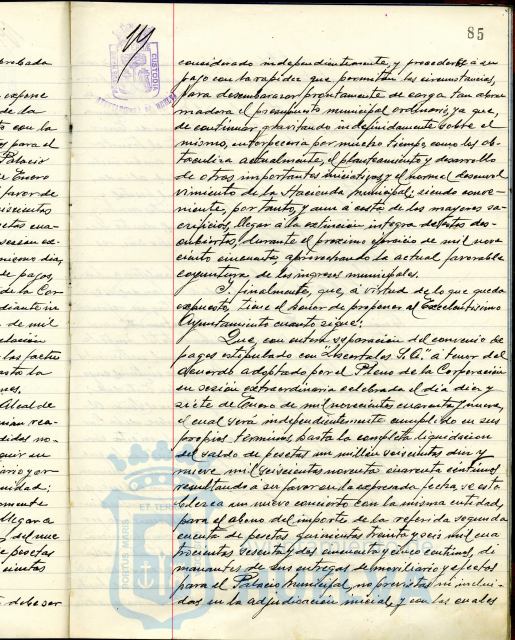 85
14
probada
expone
de la
to con la
tas para el
Palacio
de Enero
favor de
seiscientos
setas cua-
sesión ex-
mismo día,
de pagos,
de la Cor-
diante in
de mil
relación
las factu
asta la
nes.
Alcalde
nian rea-
didas no-
quir en
ario y or
nidad;
mente
llegar a
y del mue
e pesetas
cientos
deber
considerado independientemente, y procederse á su
pago con la rapidez que permitan las circunstancias,
para desembarazar prontamente de carga tan abru
madora el presupuesto municipal ordinario, ya que,
de continuar gravitando indefinidamente sobre el
mismo, entorpecería por mucho tiempo, como les obs-
taculiza actualmente, el planteamiento y desarrollo
de otras importantes iniciativas y el normal desenvol
vimiento de la Hacienda Municipal; siendo conve-
niente, por tanto, y aun á costa de los mayores sa-
crificios, llegar á la extinción integra de estos des-
cubiertos, durante el proximo ejercicio de mil nove
ciento cincuenta, aprovechando la actual favorable
coyuntura de los ingresos municipales.
Y, finalmente, que, á virtud de lo que queda
expuesto, tiene el honor de proponer al Excelentísimo
Ayuntamiento cuanto sigue:
Que, con entera separación del convenio de
pagos estipulado con S.A." á tenor del
Acuerdo adoptado por el Pleno de la Corporación
en sesión extraordinaria celebrada el día diez y
siete de Enero de mil novecientos cuarenta y nueve,
el cual será independientemente cumplido en sus
propios terminos, hasta la completa liquidación
del saldo de pesetas un millón seiscientos diez y
nueve mil seiscientos noventa cuarenta centimos
resultando á su favor en la expresada fecha, se esta
blezca un nuevo concierto con la misma entidad,
para el abono del importe de la referida segunda
cuenta de pesetas quinientos treinta y seis mil cua
trocientos sesenta y dos cincuenta y cinco centimos, di
manantes de sus entregas de mobiliario y efectos
para el Palacio Municipal, no previstas ni inclui-
das en la adjudicación inicial, y con las cuales
CUSTODIA
PORTUS MARIS
ET TERRAE